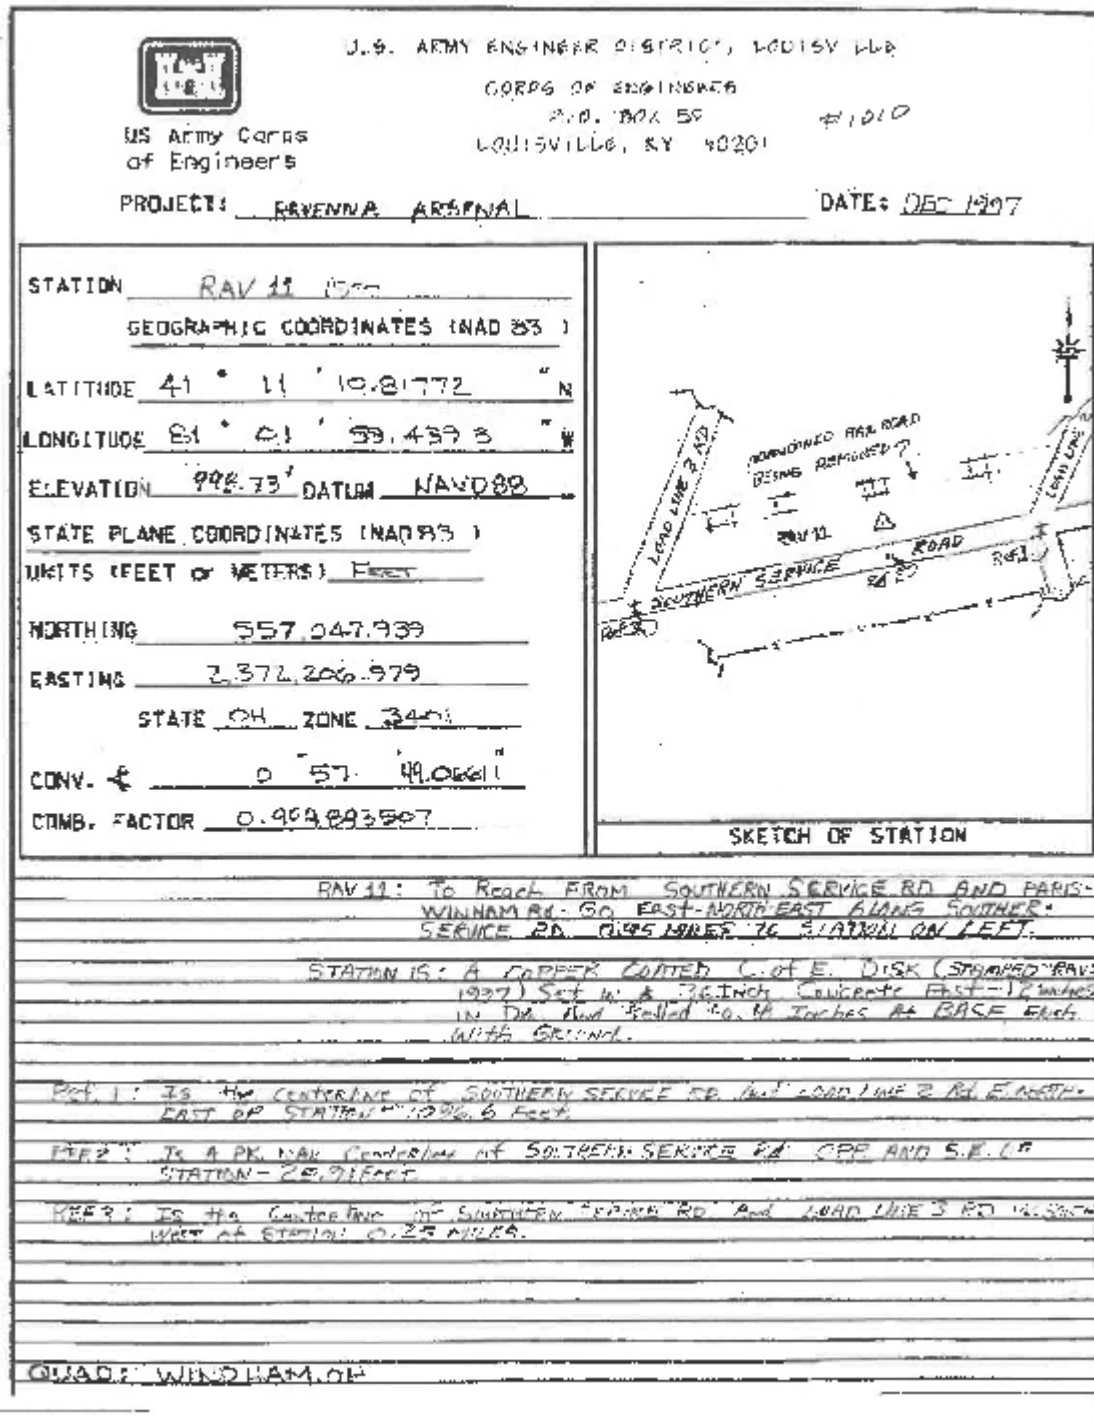 U.S. ARMY ENGINEER DISTRICT, LOUISVILLE
CORPS OF ENGINEERS
P.O. BOX 59
#1010
LOUISVILLE, KY 40201
US Army Corps
of Engineers
PROJECT: RAVENNA ARSENAL
DATE: DEC 1997
STATION RAV 11
GEOGRAPHIC COORDINATES (NAD 83 )
LATITUDE 41 ° 11 ' 10.81772 " N
LONGITUDE 81 ° 01 ' 59.4393 " W
ELEVATION 998.73' DATUM NAVD88
STATE PLANE COORDINATES (NAD 83 )
UNITS (FEET or METERS) FEET
NORTHING 557,047.939
EASTING 2,372,206.979
STATE OH ZONE 3401
CONV. 0 ° 57 '
COMB. FACTOR
LOAD LINE 3 RD
ABANDONED RAILROAD
BEING REMOVED?
LOAD LINE
RAV 11
SOUTHERN SERVICE ROAD
Ref.1
SKETCH OF STATION
RAV 11: To Reach FROM SOUTHERN SERVICE RD AND PARIS-
WINHAM Rd. Go EAST-NORTHEAST ALONG SOUTHER-
SERVICE RD 0.95 MILES TO STATION ON LEFT.
STATION IS: A COPPER COATED C. of E. DISK (STAMPED "RAV
Set in A 36 Inch Concrete Post-12 inches
IN DIA. And Inches At BASE
With Ground.
Ref. 1: Is the Centerline of SOUTHERN SERVICE RD And LOAD LINE 2 Rd E. NORTH-
EAST OF STATION - 1096.6 Feet.
REF 2: Is A PK NAIL Centerline of SOUTHERN SERVICE Rd OPP AND S.E. OF
STATION - Feet.
REF 3: Is the Centerline of SOUTHERN SERVICE RD And LOAD LINE 3 RD
WEST of STATION 0.25 MILES.
QUAD: WINDHAM, OH